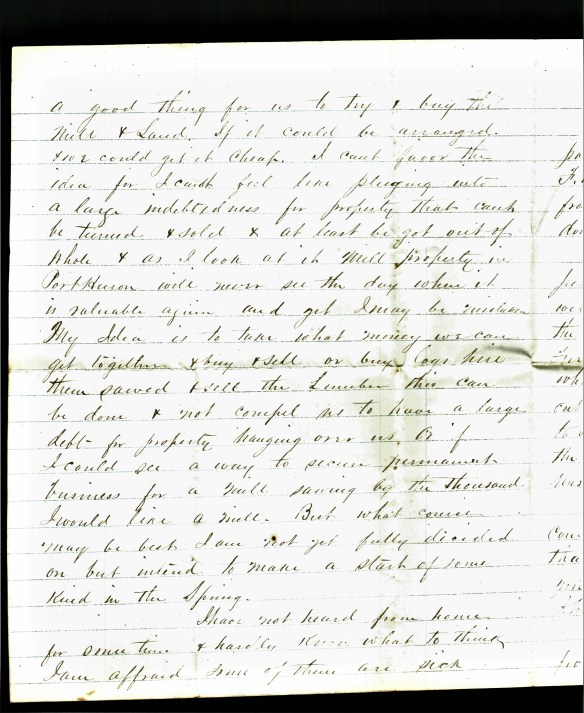 a good thing for us to try & buy the
Mill & Land. If it could be arranged.
& we could get it cheap. I cant favor the
idea for I cant feel like plunging into
a large indebtedness for property that cant
be turned & sold & at least be got out of
whole & as I look at it Mill property in
Port Huron will never see the day when it
is valuable again and yet I may be mistaken
My Idea is to take what money we can
get together & buy & sell or buy logs hire
them sawed & sell the Lumber this can
be done & not compel us to have a large
debt for property hanging over us. Or if
I could see a way to secure permanent
business for a mill sawing by the thousand
I would like a mill. But what course
may be best I am not yet fully decided
on but intend to make a start of some
kind in the Spring.
I have not heard from home
for some time & hardly know what to think
I am affraid some of them are sick